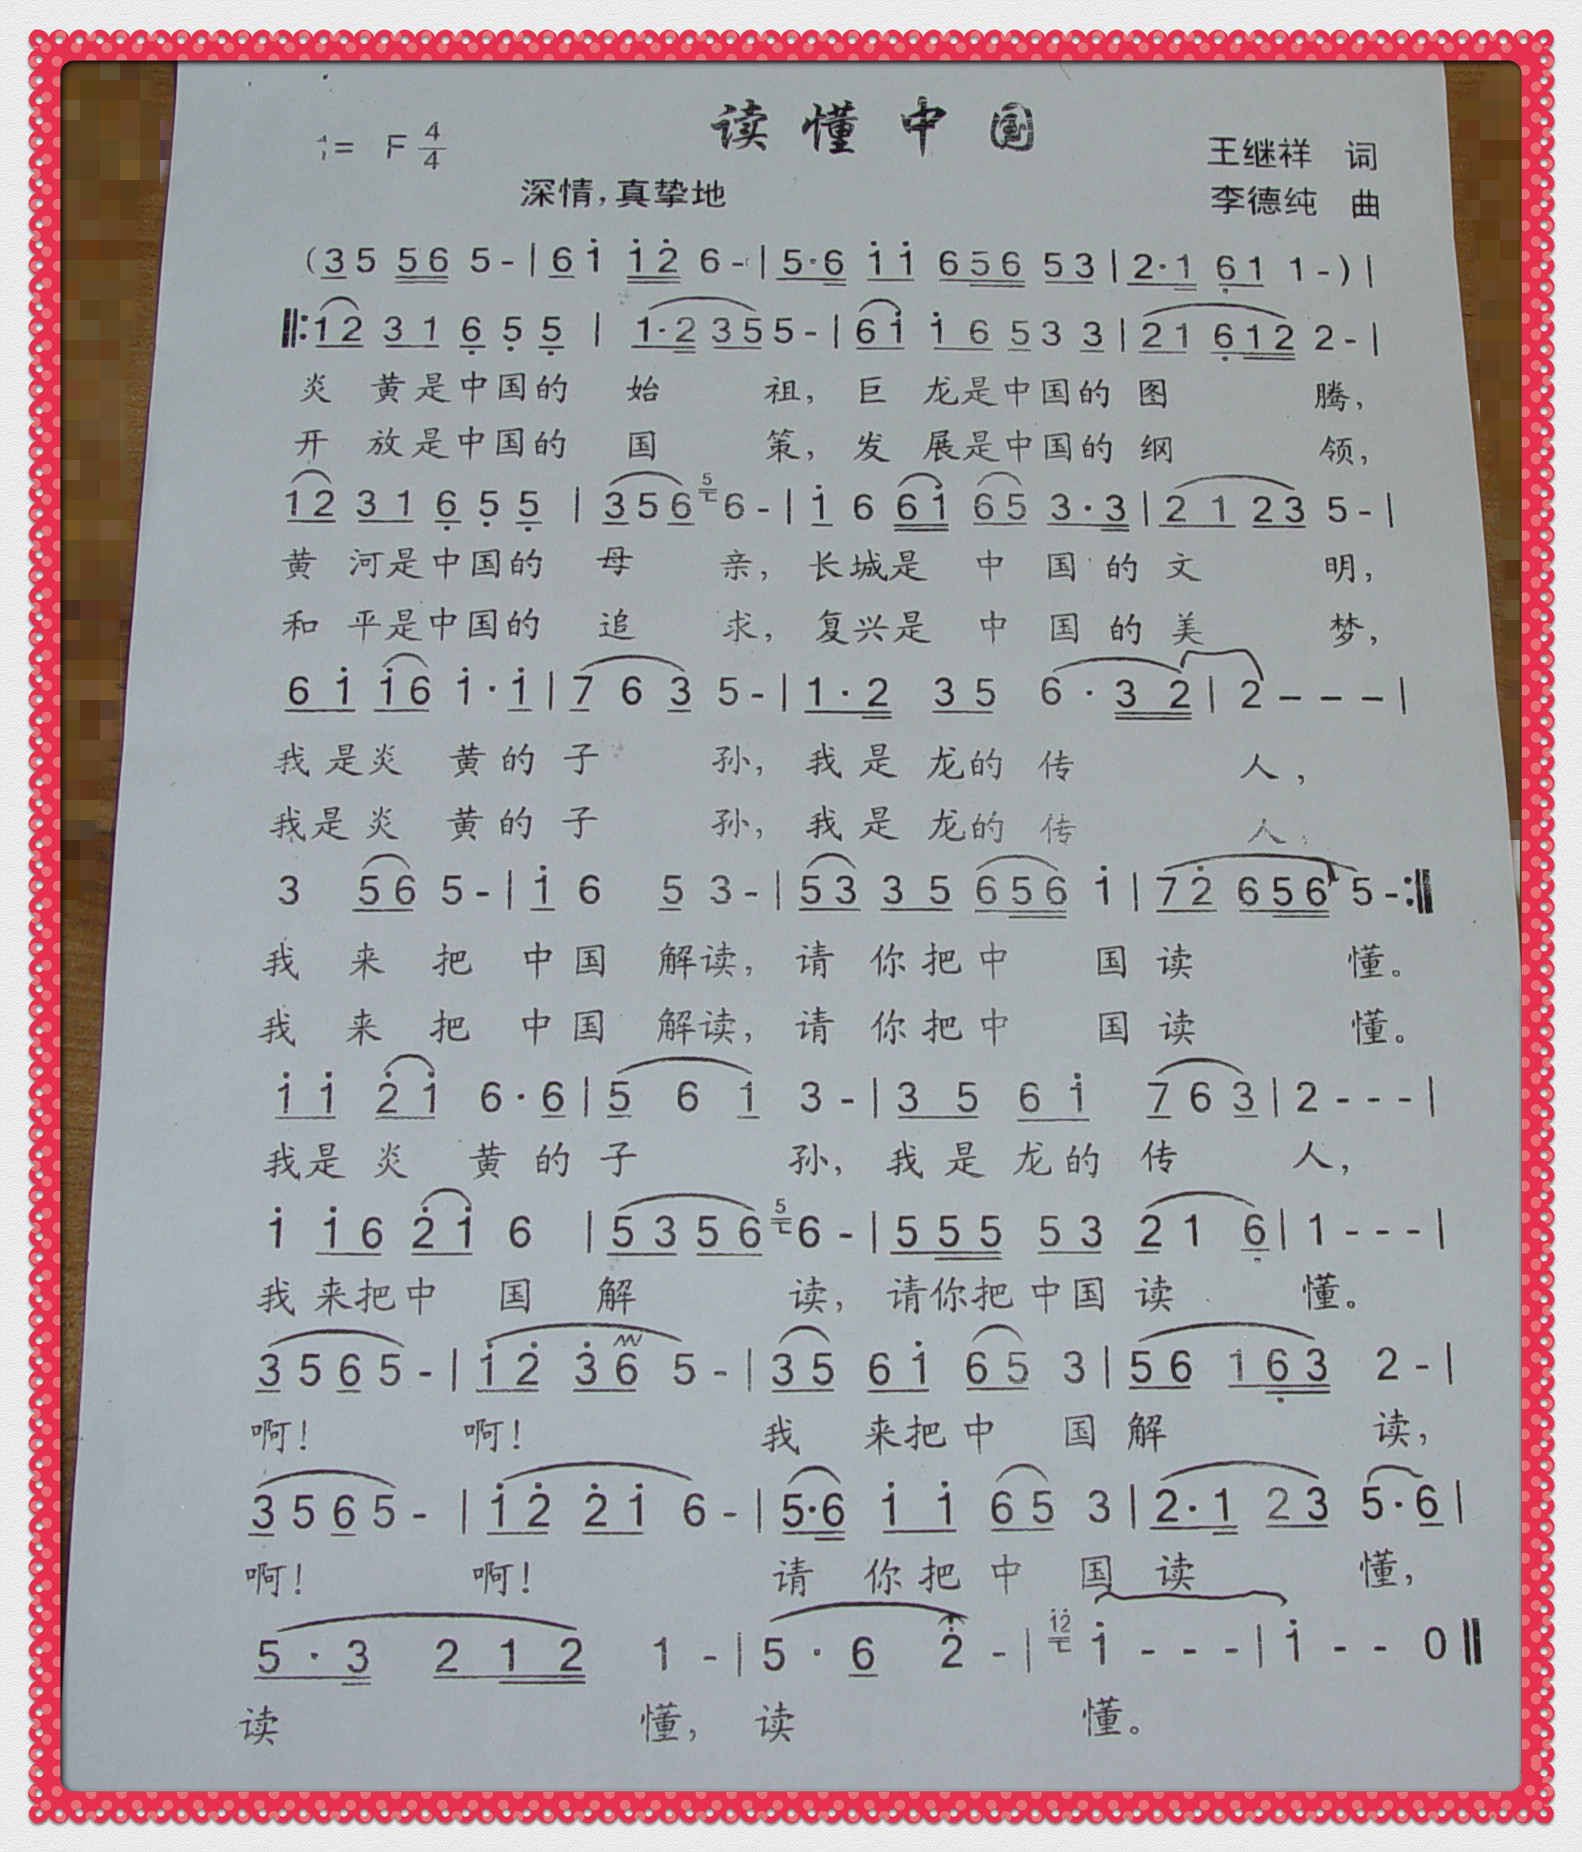 读懂中国
1= F 4/4
王继祥 词
深情,真挚地
李德纯 曲
(3 5 5 6 5 - | 6 i i 2 6 - | 5·6 i i 6 5 6 5 3 | 2·1 6 1 1 -) |
‖: 1 2 3 1 6 5 5 | 1·2 3 5 5 - | 6 i i 6 5 3 3 | 2 1 6 1 2 2 - |
炎 黄是中国的 始 祖, 巨 龙是中国的 图 腾,
开 放是中国的 国 策, 发 展是中国的 纲 领,
1 2 3 1 6 5 5 | 3 5 6 5 6 - | i 6 6 i 6 5 3·3 | 2 1 2 3 5 - |
黄 河是中国的 母 亲, 长城是 中 国 的 文 明,
和 平是中国的 追 求, 复兴是 中 国 的 美 梦,
6 i i 6 i·i | 7 6 3 5 - | 1·2 3 5 6·3 2 | 2 - - - |
我 是炎 黄 的 子 孙, 我 是 龙的 传 人,
我是 炎 黄 的 子 孙, 我 是 龙的 传 人,
3 5 6 5 - | i 6 5 3 - | 5 3 3 5 6 5 6 i | 7 2 6 5 6 5 - :‖
我 来 把 中 国 解读, 请 你 把 中 国 读 懂。
我 来 把 中 国 解读, 请 你 把 中 国 读 懂。
i i 2 i 6·6 | 5 6 1 3 - | 3 5 6 i 7 6 3 | 2 - - - |
我是 炎 黄 的 子 孙, 我 是 龙 的 传 人,
i i 6 2 i 6 | 5 3 5 6 5 6 - | 5 5 5 5 3 2 1 6 | 1 - - - |
我 来把 中 国 解 读, 请你把 中国 读 懂。
3 5 6 5 - | i 2 3 6 5 - | 3 5 6 i 6 5 3 | 5 6 1 6 3 2 - |
啊! 啊! 我 来把 中 国 解 读,
3 5 6 5 - | i 2 2 i 6 - | 5·6 i i 6 5 3 | 2·1 2 3 5·6 |
啊! 啊! 请 你 把 中 国 读 懂,
5·3 2 1 2 1 - | 5·6 2 - | i2 i - - - | i - - 0 ‖
读 懂, 读 懂。